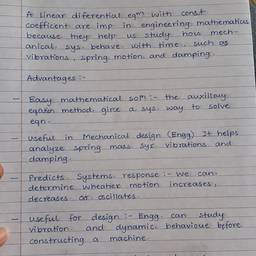 A linear diferential eqⁿ with const
coefficent are imp in engineering mathematics
because they help us study how mech-
anical sys. behave with time, such as
vibrations, spring motion and damping.
Advantages :-
- Easy mathematical solⁿ :- the auxillary
equation method give a sys. way to solve
eqn.
- useful in Mechanical design (Engg) It helps
analyze spring mass sys vibrations and
damping.
- Predicts Systems response :- We can
determine wheather motion increases,
decreases or oscillates.
- useful for design :- Engg. can study
vibration and dynamic behaviour before
constructing a machine.